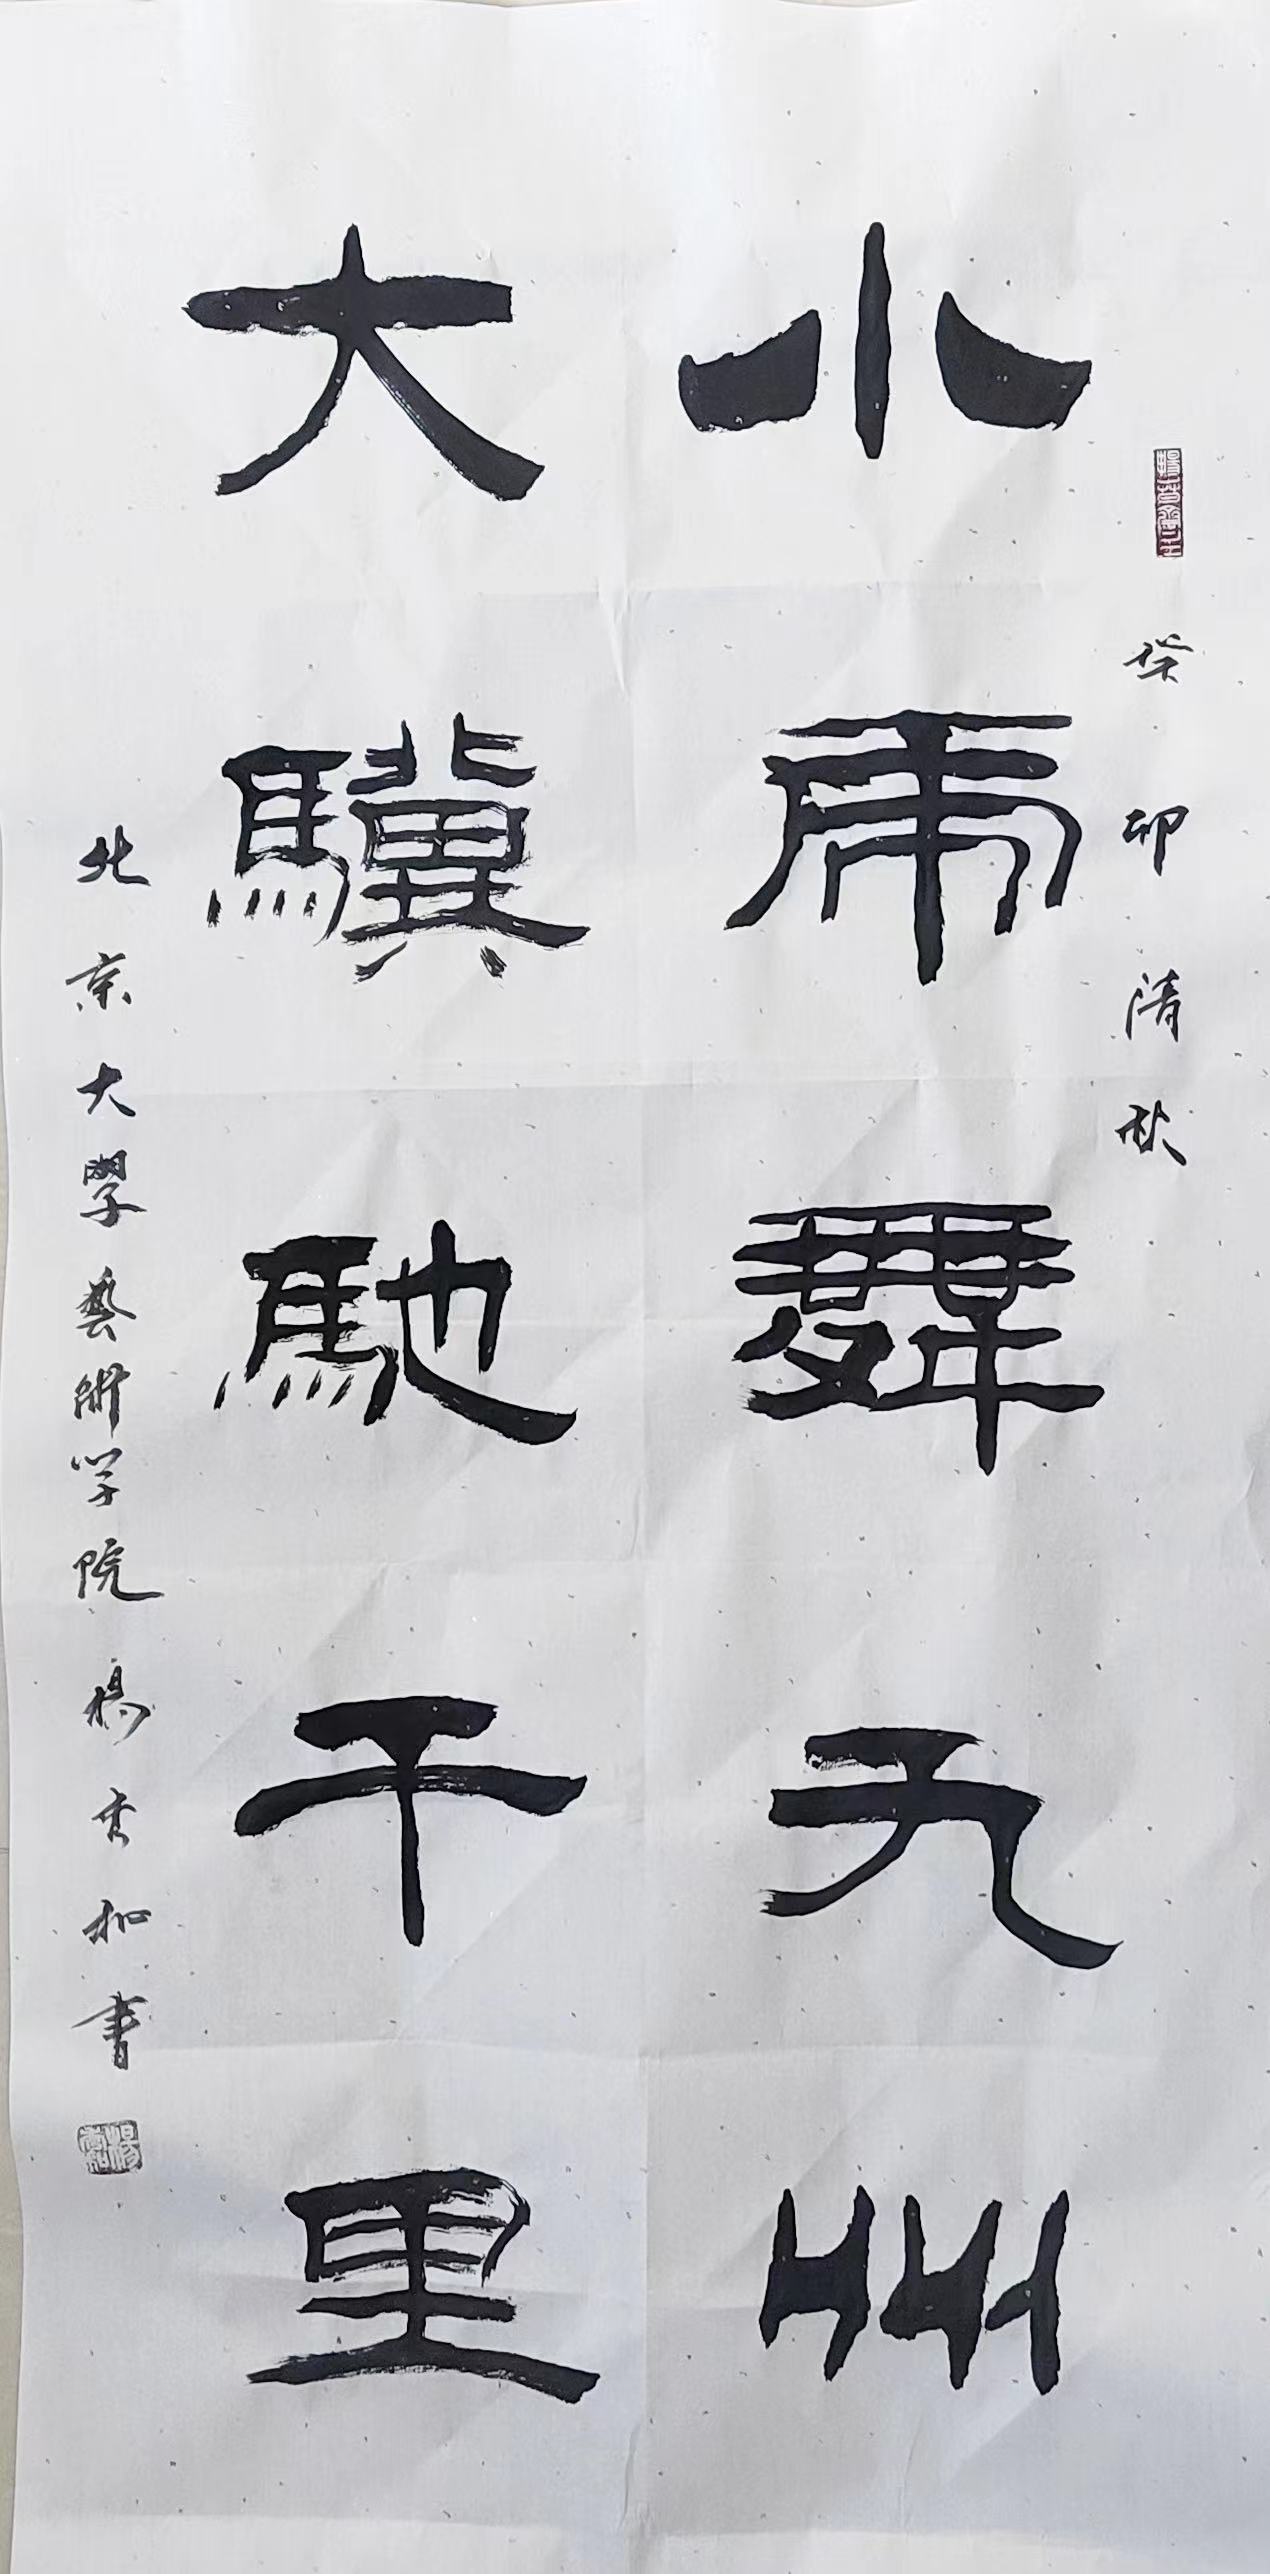 癸卯清秋
小虎舞九州
大驥馳千里
北京大學藝術学院楊和書